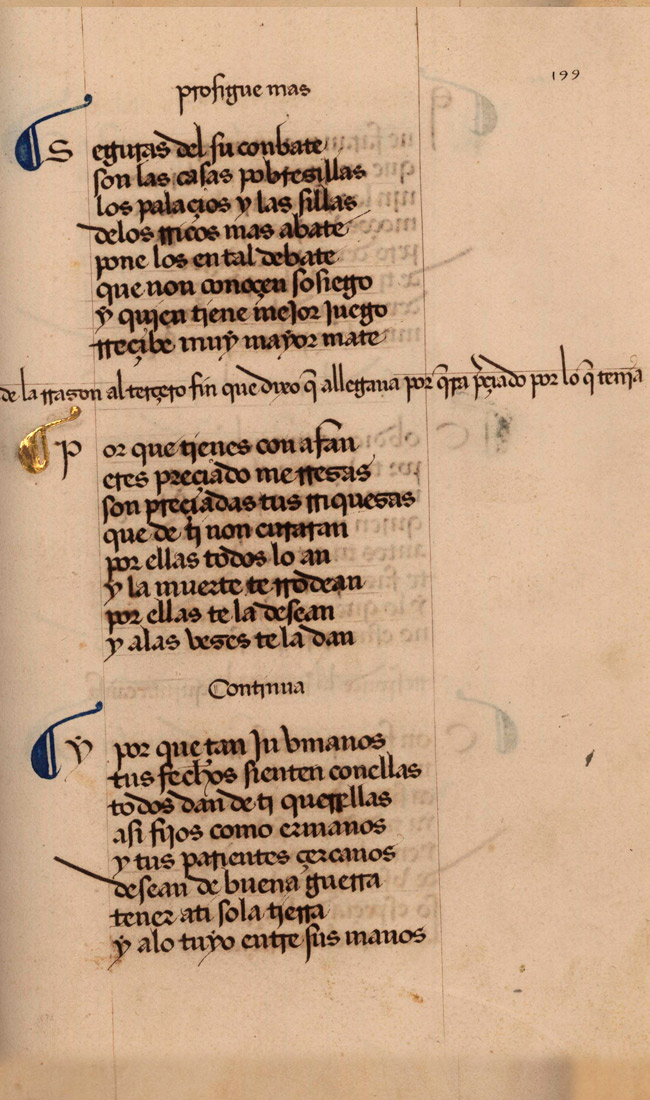 199
prosigue mas
S eguras del su conbate
son las casas pobresillas
los palaçios y las sillas
delos rricos mas abate
pone los en tal debate
que non conoçen sosiego
y quien tiene mejor juego
rreçibe muy mayor mate
de la rrason al terçero fin que dixo q̄ allegaua por q̄ era p̄çiado por lo q̄ tenia
P or que tienes con afan
eres preçiado me rresas
son preçiadas tus rriquesas
que de ti non curaran
por ellas todos lo an
y la muerte te rrodean
por ellas te la desean
y alas veses te la dan
Continua
Y por que tan Jn vmanos
tus fechos sienten conellas
todos dan de ti querellas
asi fijos como ermanos
y tus parientes çercanos
desean de buena guerra
tener ati sola tierra
y alo tuyo entre sus manos